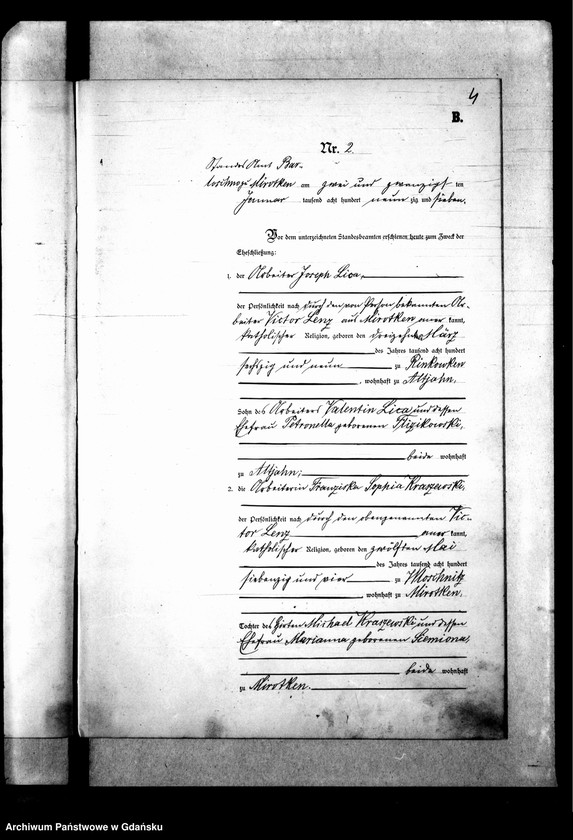 4
B.
Nr. 2.
Standes Amt Bar-
loschno zu Mirotken am zwei und zwanzigs ten
Januar tausend acht hundert neun zig und sieben.
Vor dem unterzeichneten Standesbeamten erschienen heute zum Zweck der
Eheschließung:
1. der Arbeiter Joseph Lica,
der Persönlichkeit nach durch den von Person bekannten Ar-
beiter Victor Lenz aus Mirotken aner kannt,
katholischer Religion, geboren den dreizehnten März
des Jahres tausend acht hundert
sechszig und neun zu Rinkowken
, wohnhaft zu Altjahn.
Sohn des Arbeiters Valentin Lica und dessen
Ehefrau Petronella geborenen
beide wohnhaft
zu Altjahn;
2. die Arbeiterin Franziska Sophia Kraszewski,
der Persönlichkeit nach durch den obengenannten Vic-
tor Lenz aner kannt,
katholischer Religion, geboren den zwölften Mai
des Jahres tausend acht hundert
siebenzig und vier zu
, wohnhaft zu Mirotken.
Tochter des Hirten Michael Kraszewski und dessen
Ehefrau Marianna geborenen Siemiona,
beide wohnhaft
zu Mirotken.
Archiwum Państwowe w Gdańsku